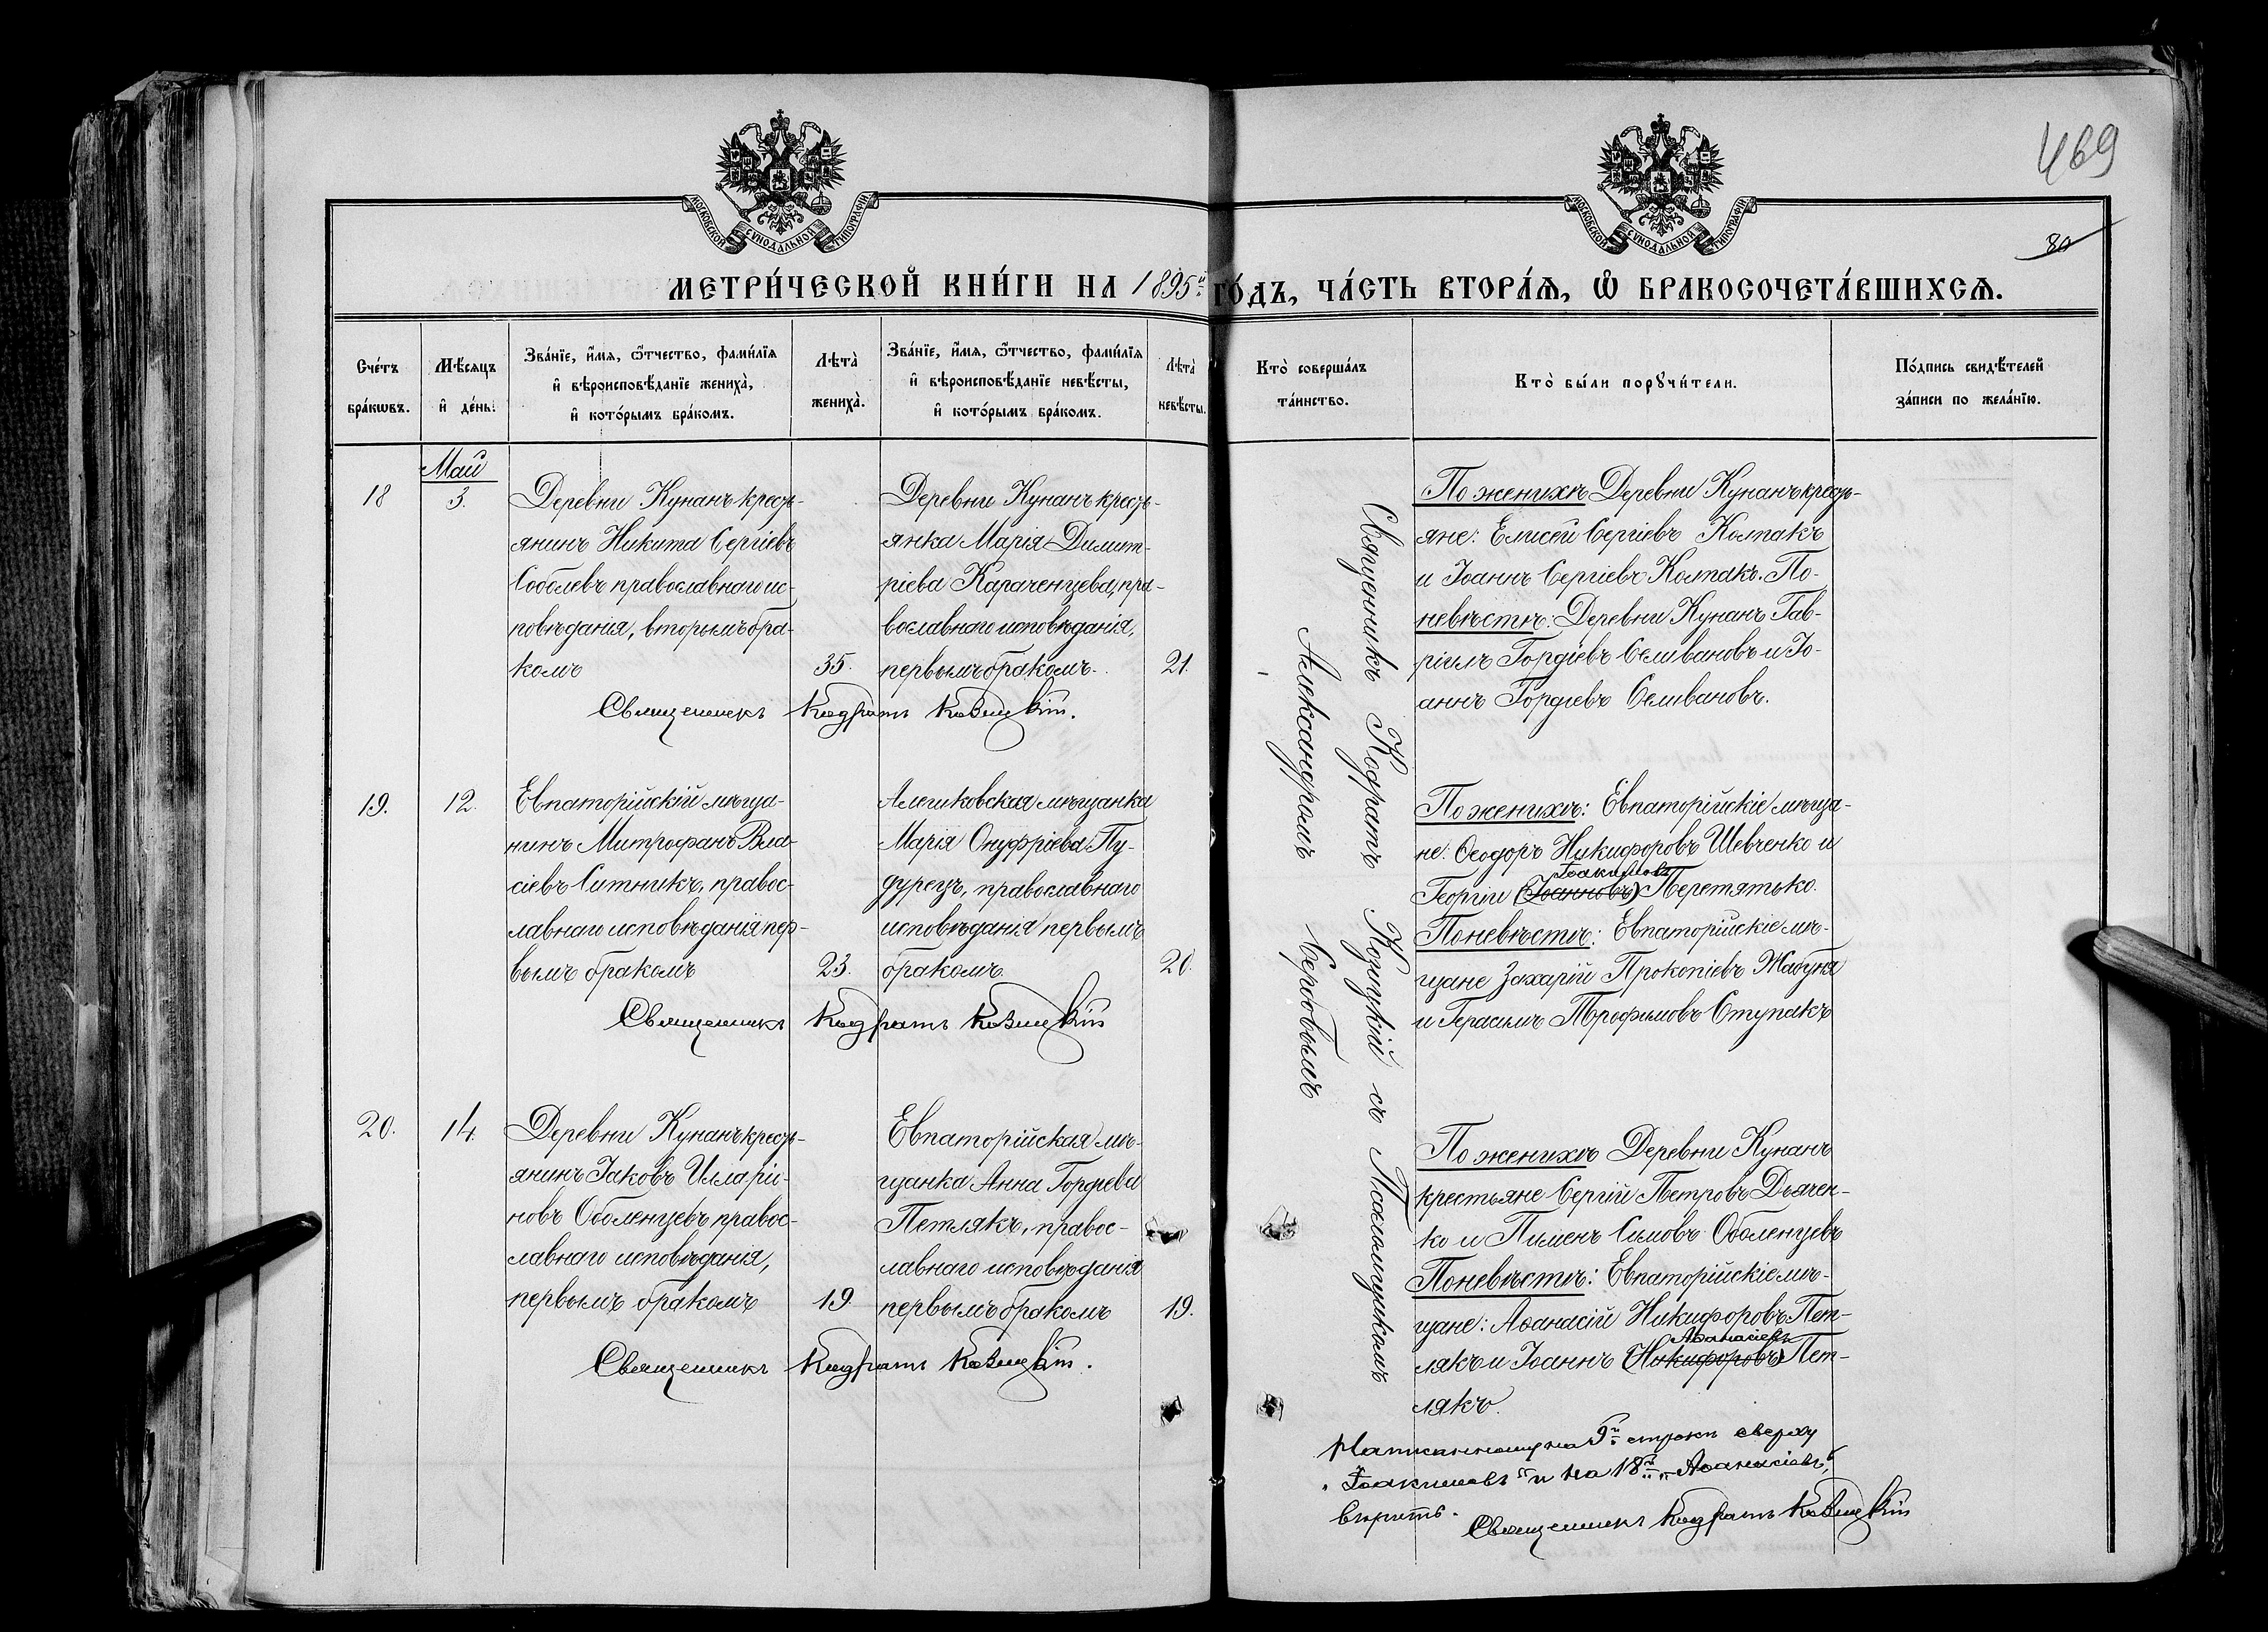 469
80
МОСКОВСКОЙ СѴНОДАЛЬНОЙ ТИПОГРАФІИ
МОСКОВСКОЙ СѴНОДАЛЬНОЙ ТИПОГРАФІИ
МЕТРИ́ЧЕСКОЙ КНИ́ГИ НА 1895й ГО́ДЪ, ЧА́СТЬ ВТОРА́Ѧ, Ѡ҆ БРАКОСОЧЕТА́ВШИХСѦ.
Сче́тъ
бра́кѡвъ.
Мѣ́сяцъ
и҆ де́нь.
Зва́нїе, и҆́мѧ, ѻ҆́тчество, фами́лїѧ
и҆ вѣроисповѣ́данїе жениха̀,
и҆ кото́рымъ бра́комъ.
Лѣта̀
жениха̀.
Зва́нїе, и҆́мѧ, ѻ҆́тчество, фами́лїѧ
и҆ вѣроисповѣ́данїе невѣ́сты,
и҆ кото́рымъ бра́комъ.
Лѣта̀
невѣ́сты.
Кто̀ соверша́лъ
та́инство.
Кто̀ бы́ли порꙋчи́тели.
По́дпись свидѣ́телей
за́писи по жела́нїю.
Май
18
3.
Деревни Кунанъ кресть-
янинъ Никита Сергіевъ
Соболевъ православнаго ис-
повѣданія, вторымъ бра-
комъ
35.
Деревни Кунанъ кресть-
янка Марія Димит-
ріева Караченцева, пра-
вославнаго исповѣданія,
первымъ бракомъ.
21.
Священникъ Кодратъ Козицкій.
По женихѣ Деревни Кунанъ кресть-
яне: Елисей Сергіевъ Колпакъ
и Іоаннъ Сергіевъ Колпакъ. По-
невѣстѣ: Деревни Кунанъ Гав-
ріилъ Гордіевъ Селивановъ и Іо-
аннъ Гордіевъ Селивановъ.
19.
12.
Евпаторійскій мѣща-
нинъ Митрофанъ Вла-
сіевъ Ситникъ, правос-
лавнаго исповѣданія пер-
вымъ бракомъ
23.
Алешковская мѣщанка
Марія Онуфріева Пу-
дурецъ, православнаго
исповѣданія первымъ
бракомъ.
20.
Священникъ Кодратъ Козицкій
По женихѣ: Евпаторійскіе мѣща-
не: Ѳеодоръ Никифоровъ Шевченко и
Іоакимовъ
Георгій (Іоанновъ) Перетятько.
По невѣстѣ: Евпаторійскіе мѣ-
щане Захарій Прокопіевъ Жабуня
и Герасимъ Трофимовъ Ступакъ
20.
14.
Деревни Кунанъ кресть-
янинъ Іаковъ Иларіо-
новъ Оболенцевъ правос-
лавнаго исповѣданія,
первымъ бракомъ
19.
Евпаторійская мѣ-
щанка Анна Гордіева
Петлякъ, правос-
лавнаго исповѣданія
первымъ бракомъ
19.
Священникъ Кодратъ Козицкій.
По женихѣ Деревни Кунанъ
крестьяне Сергій Петровъ Дьячен-
ко и Пименъ Симовъ Оболенцевъ
По невѣстѣ: Евпаторійскіе мѣ-
щане: Аѳанасій Никифоровъ Пет-
Аѳанасіевъ
лякъ и Іоаннъ (Никифоровъ) Пет-
лякъ.
Священникъ Кодратъ Козицкій съ Псаломщикомъ
Александромъ Серовымъ
Написанному на 9й строкѣ сверху
"Іоакимовъ" и на 18й "Аѳанасіевъ",
вѣрить.
Священникъ Кодратъ Козицкій